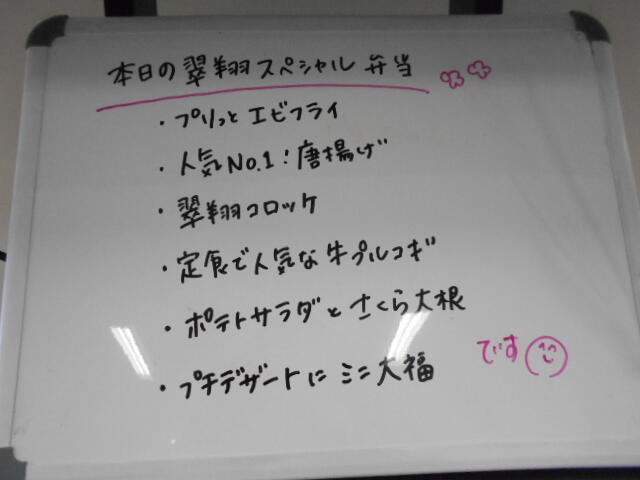 本日の翠翔スペシャル弁当
・プリっとエビフライ
・人気No.1!唐揚げ
・翠翔コロッケ
・定食で人気な牛プルコギ
・ポテトサラダとさくら大根
・プチデザートにミニ大福
でぇす